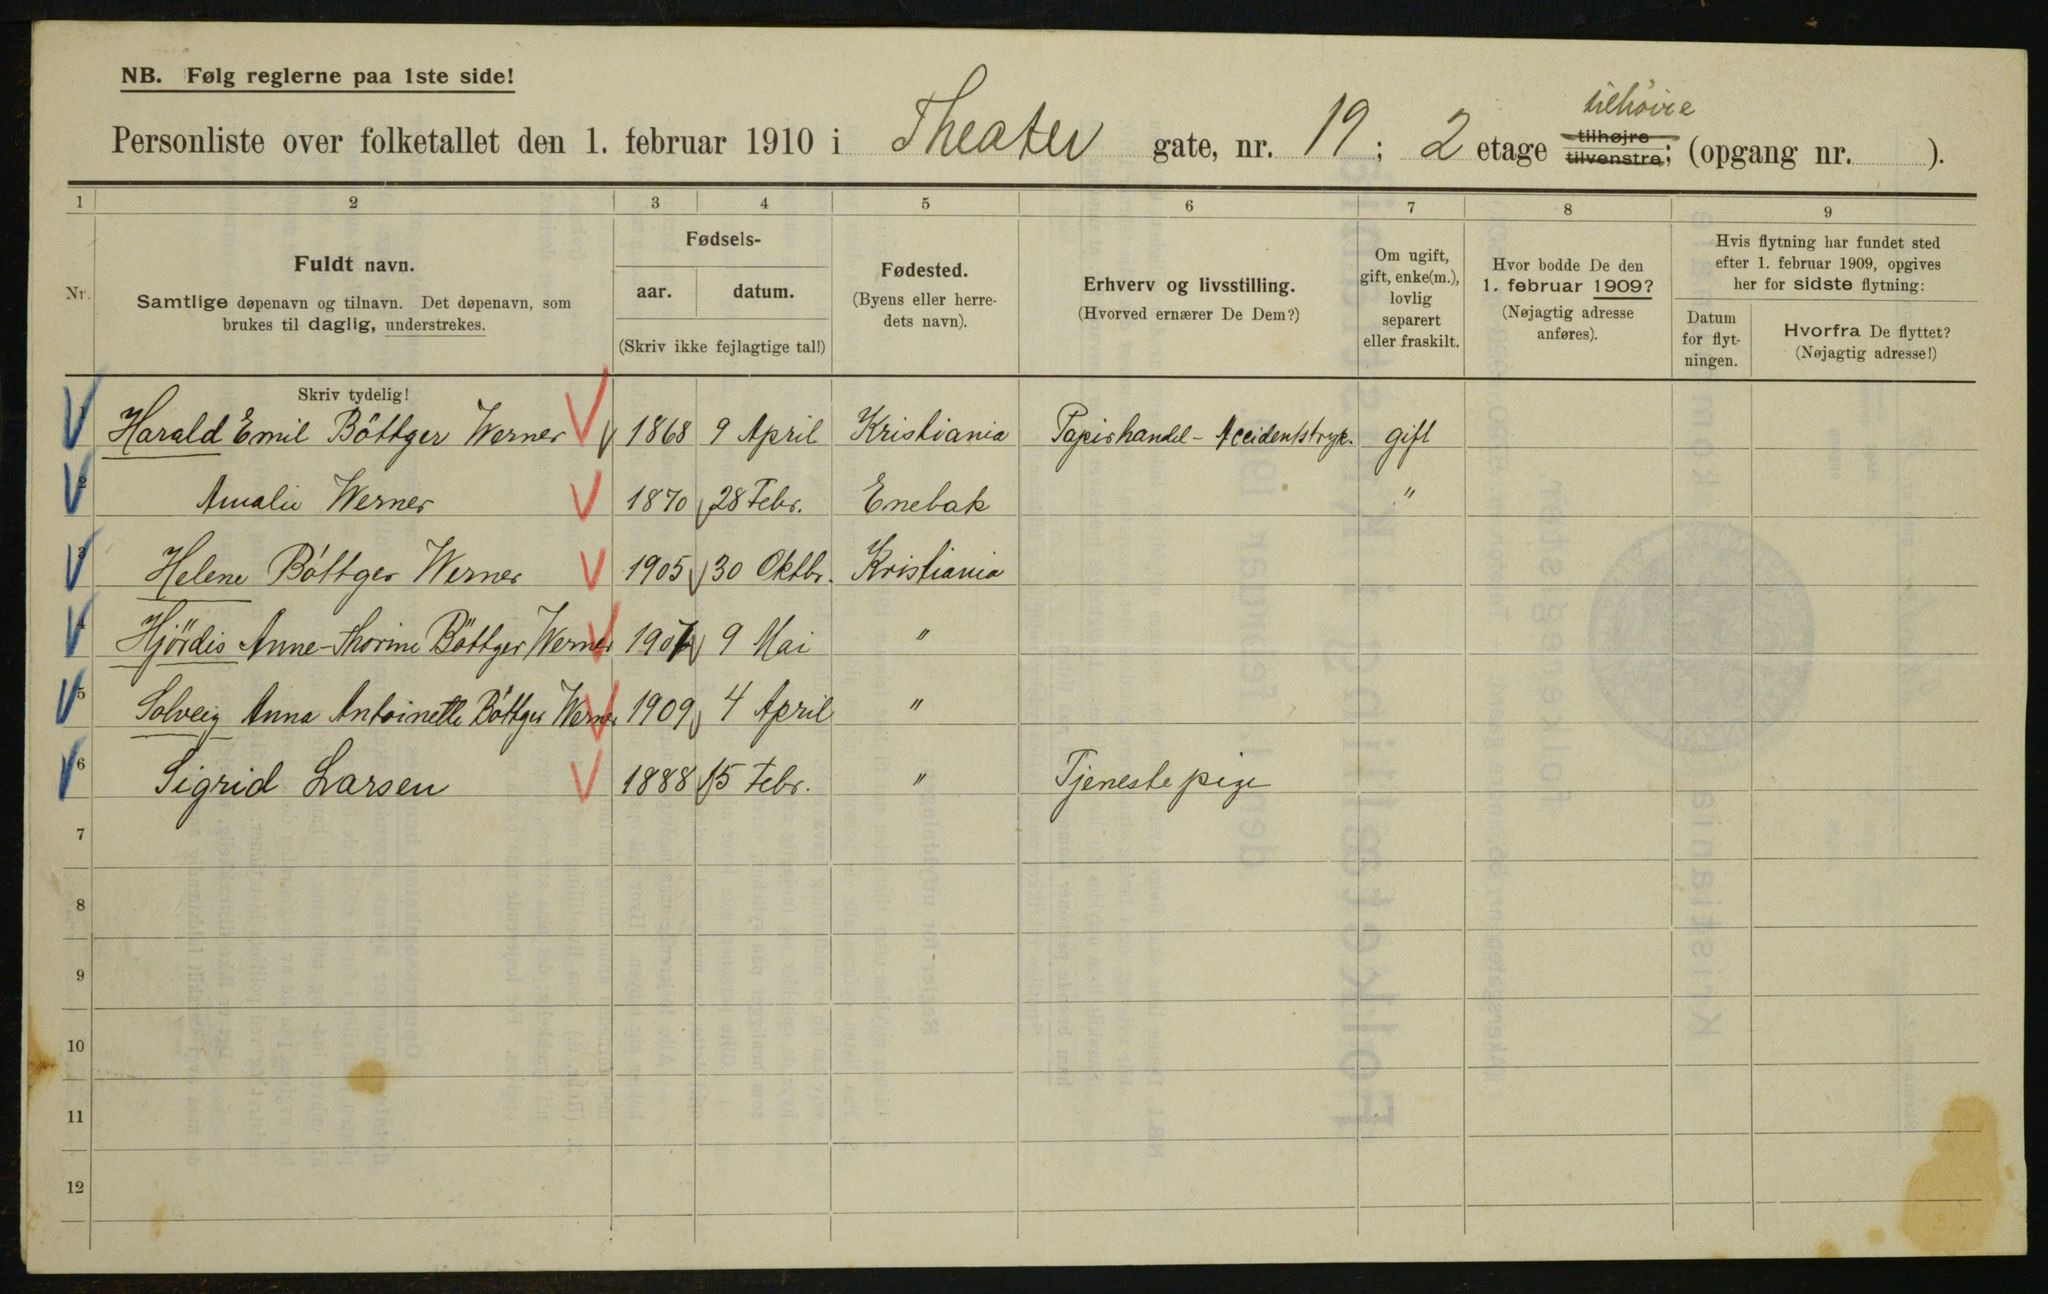 NB. Følg reglerne paa 1ste side!
tilhøire
Personliste over folketallet den 1. februar 1910 i Theater gate, nr. 19; 2 etage tilhøjre tilvenstre; (opgang nr. ).
1 2 3 4 5 6 7 8 9
Nr.
Fuldt navn.
Samtlige døpenavn og tilnavn. Det døpenavn, som
brukes til daglig, understrekes.
Fødsels-
aar. datum.
(Skriv ikke fejlagtige tal!)
Fødested.
(Byens eller herre-
dets navn).
Erhverv og livsstilling.
(Hvorved ernærer De Dem?)
Om ugift,
gift, enke(m.),
lovlig
separert
eller fraskilt.
Hvor bodde De den
1. februar 1909?
(Nøjagtig adresse
anføres).
Hvis flytning har fundet sted
efter 1. februar 1909, opgives
her for sidste flytning:
Datum
for flyt-
ningen.
Hvorfra De flyttet?
(Nøjagtig adresse!)
Skriv tydelig!
1 Harald Emil Böttger Werner 1868 9 April Kristiania Papirhandel - Accidentstryk. gift
2 Amalie Werner 1870 28 Febr. Enebak "
3 Helene Böttger Werner 1905 30 Oktbr. Kristiania
4 Hjördis Anne-Thorine Böttger Werner 1907 9 Mai "
5 Solveig Anna Antoinette Böttger Werner 1909 4 April "
6 Sigrid Larsen 1888 15 Febr. " Tjenestepige
7
8
9
10
11
12